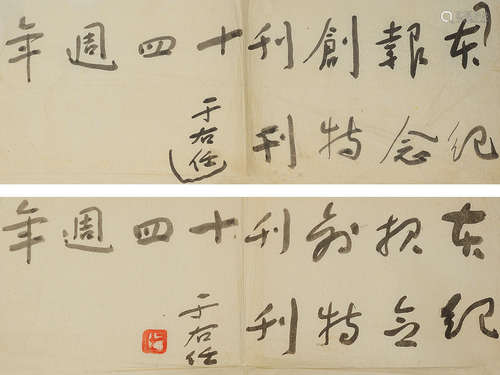 本報創刊十四週年
紀念特刊
于右任
本報創刊十四週年
紀念特刊
于右任